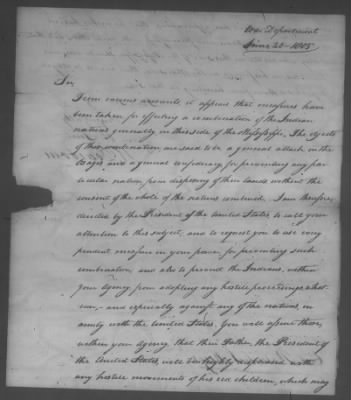 War Department
June 20 - 1805
Sir,
From various accounts it appears that measures have
been taken for effecting a combination of the Indian
nations generally on this side of the Mississippi. The objects
of this combination, are said to be a general attack on the
Osages and a general confederacy for preventing any par-
ticular nation from disposing of their lands without the
consent of the whole of the nations combined. I am therefore,
directed by the President of the United States, to call your
attention to this subject, and to request you to use every
prudent measure in your power, for preventing such
combination, and also to prevent the Indians, within
your Agency from adopting any hostile proceedings what-
ever, - and especially against any of the nations, in
amity with the United States. You will assure those,
within your Agency, that their Father, the President of
the United States, will be highly displeased with
any hostile movements of his red children, which may